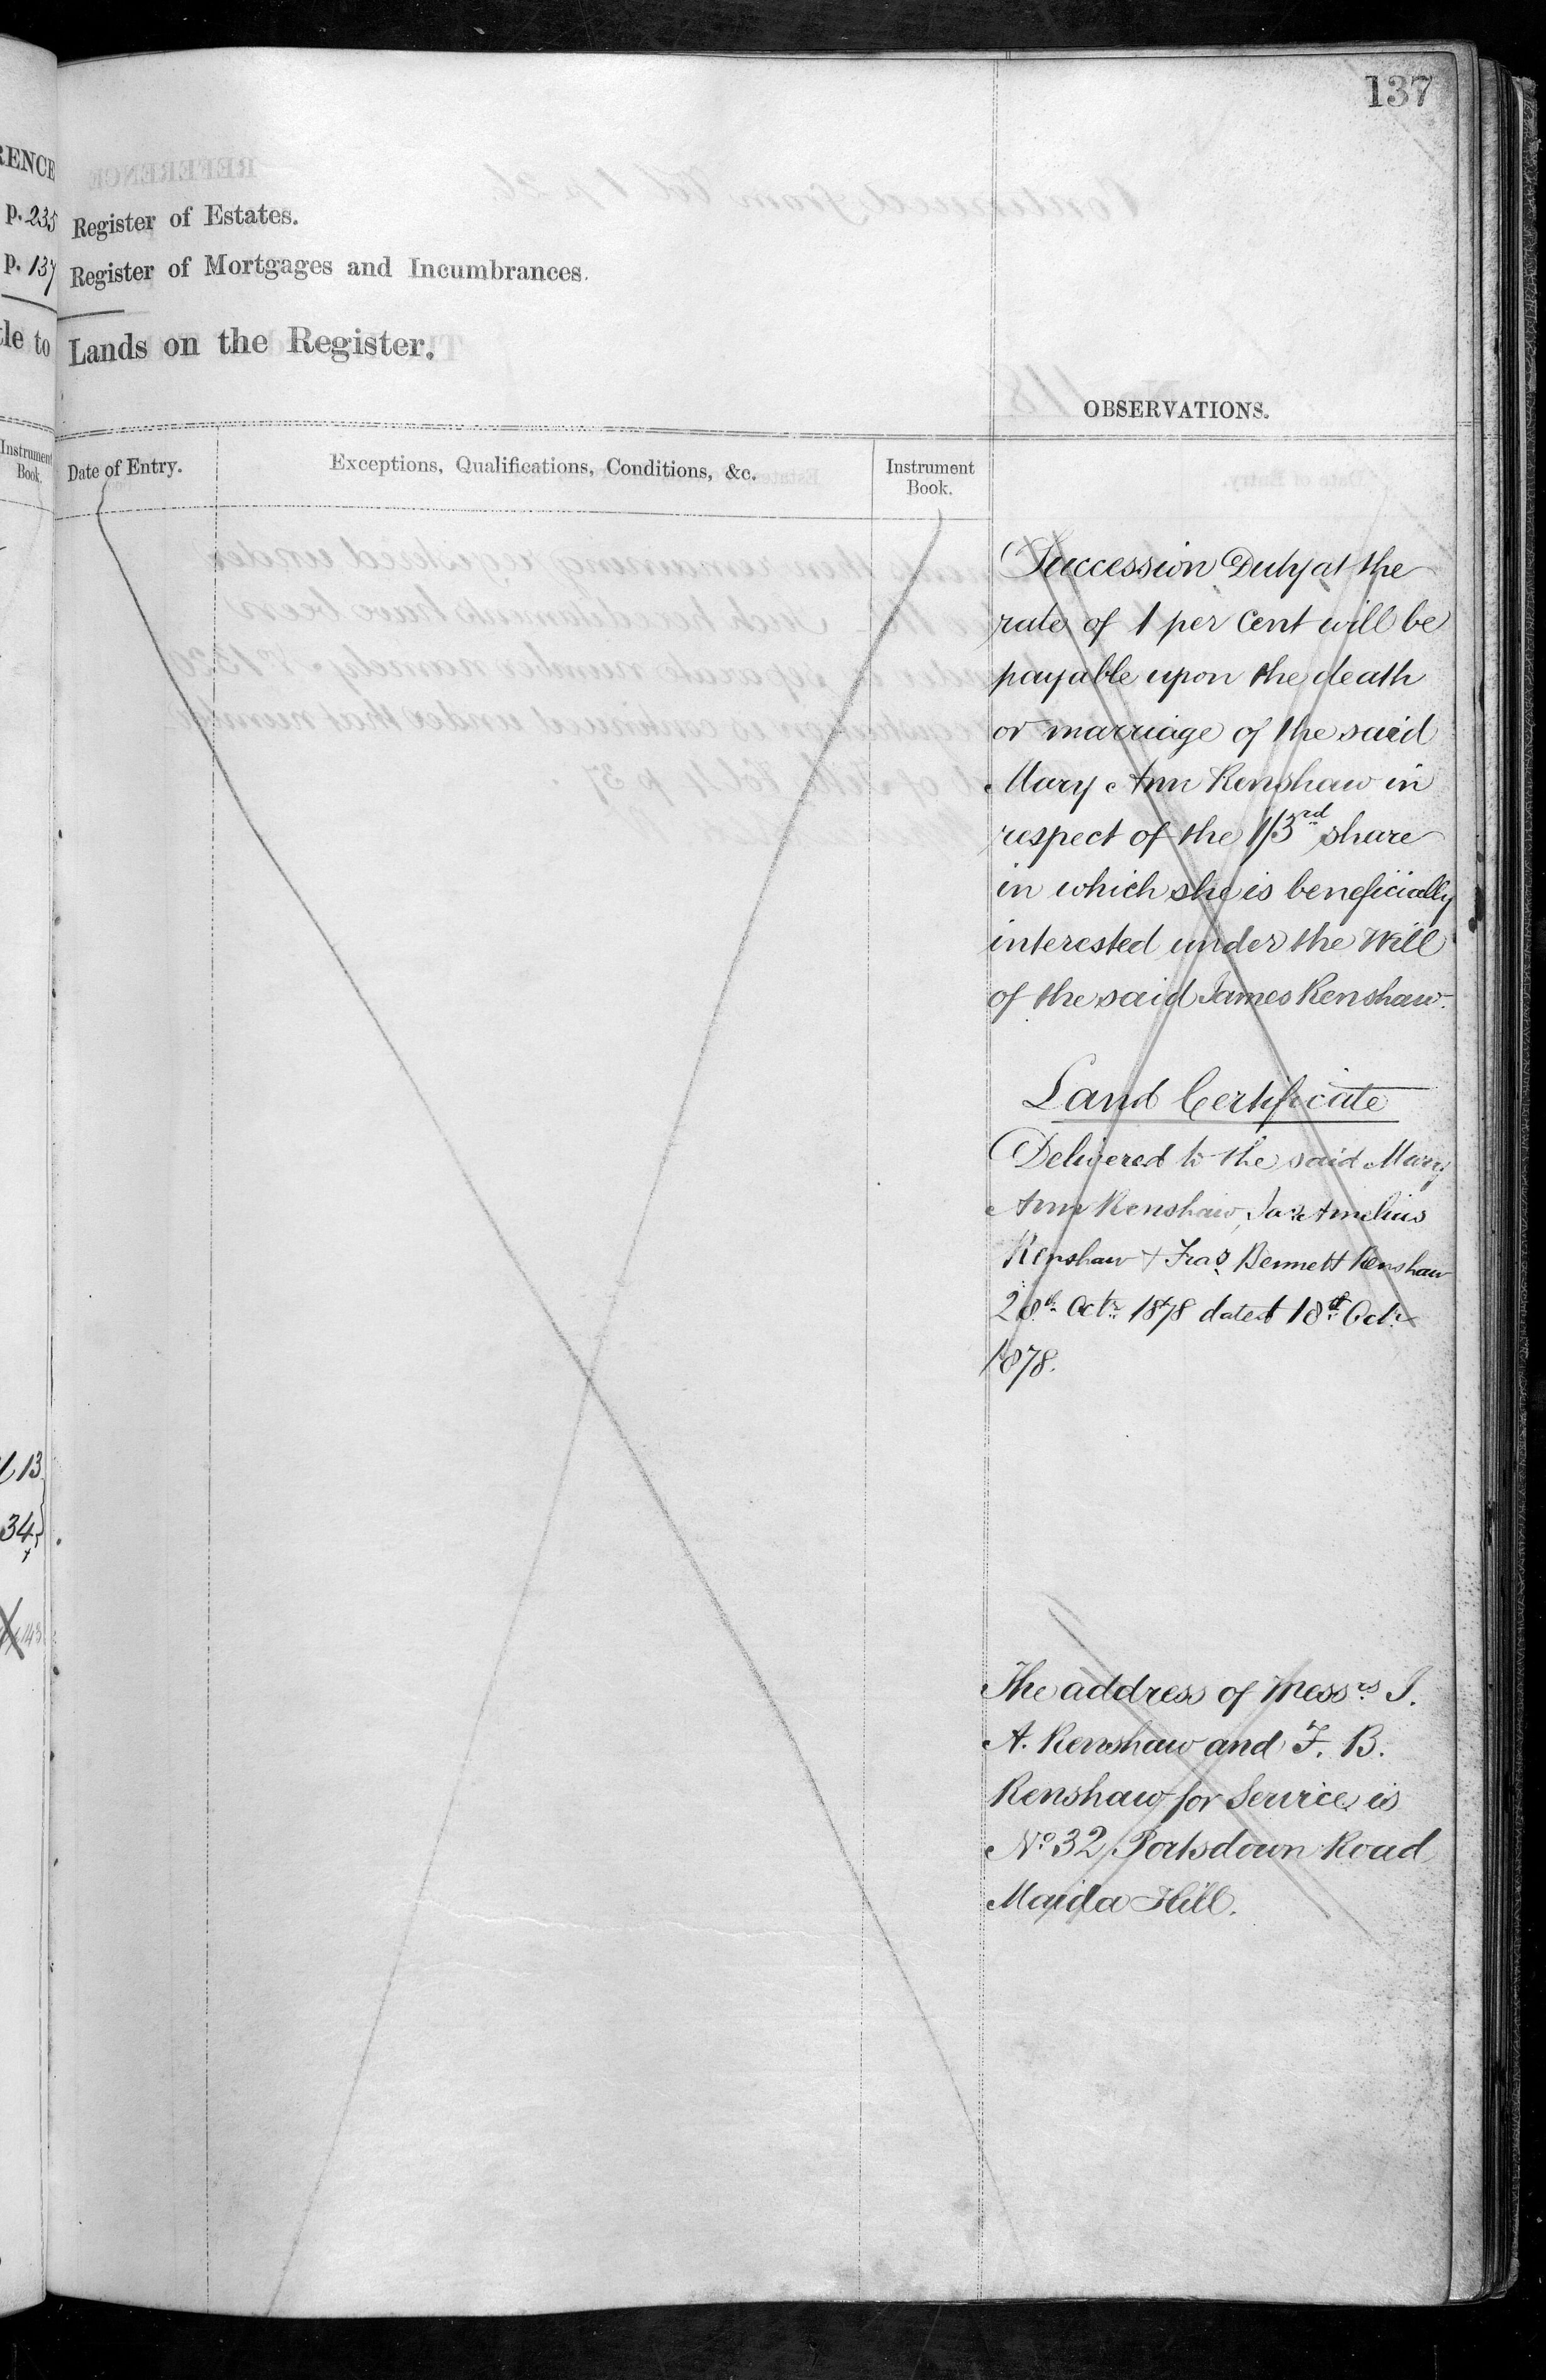 137
RENCE
p. 235
Register of Estates.
p. 137
Register of Mortgages and Incumbrances.
tle to
Lands on the Register.
OBSERVATIONS.
Instrument
Book.
Date of Entry.
Exceptions, Qualifications, Conditions, &c.
Instrument
Book.
Succession Duty at the
rate of 1 per Cent will be
payable upon the death
or marriage of the said
Mary Ann Renshaw in
respect of the 1/3rd share
in which she is beneficially
interested under the Will
of the said James Renshaw.
Land Certificate
Delivered to the said Mary
Ann Renshaw, Jas. Amelius
Renshaw + Fras. Bennett Renshaw
28th Octr. 1878 dated 18th Octr.
1878.
13
34
The address of Messrs. J.
A. Renshaw and F. B.
Renshaw for Service is
No 32 Portsdown Road
Maida Hill.